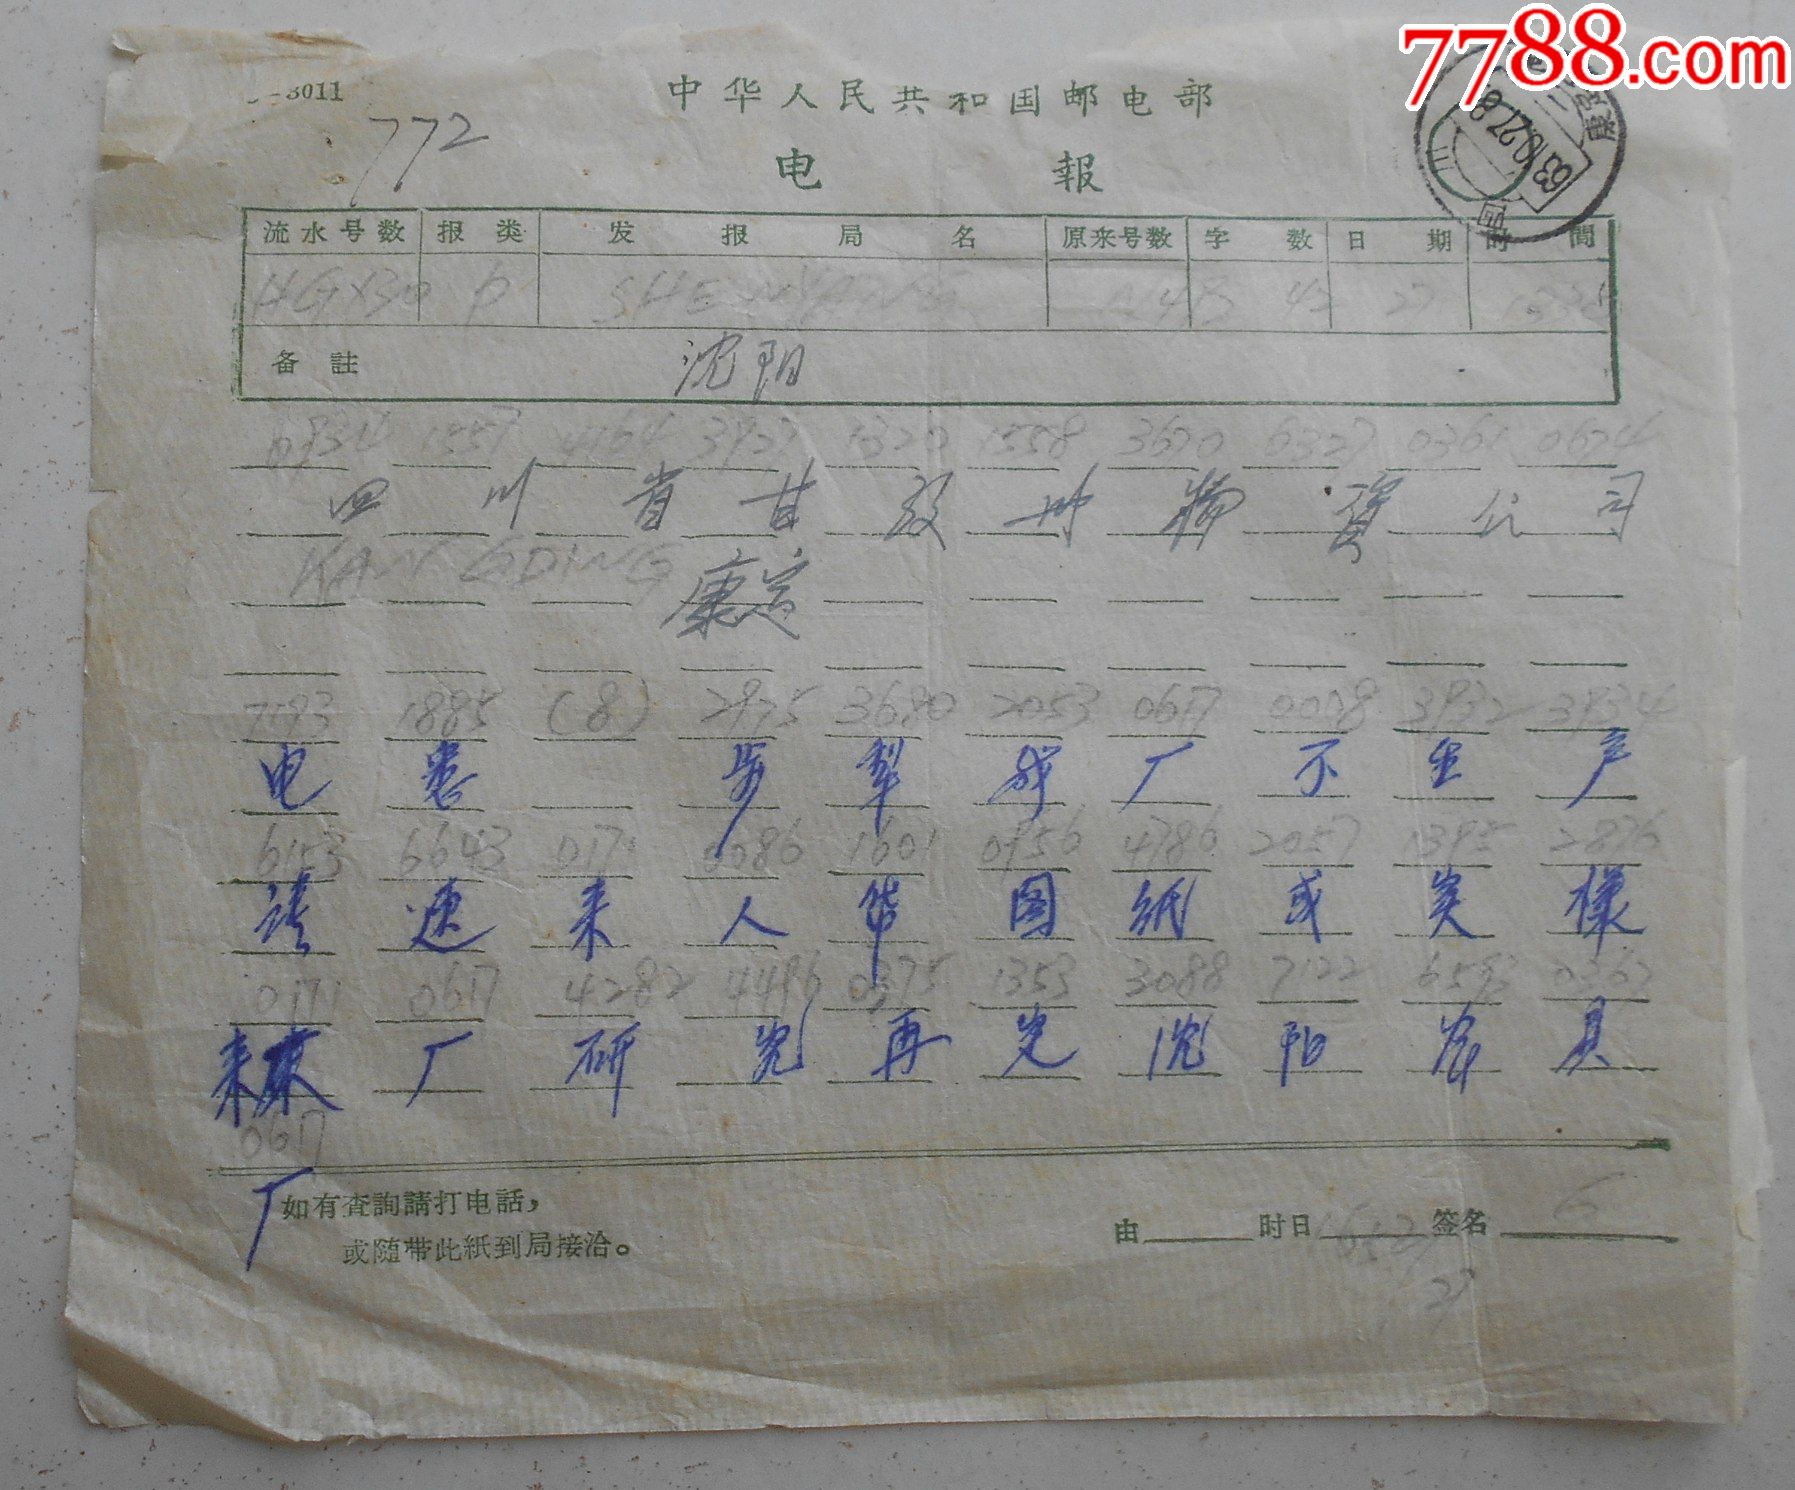 7788.com
3011
中华人民共和国邮电部
772
电報
63.10.27.8
康定
流水号数 报类 发报局名 原来号数 字数 日期 时間
HGX30 P SHENYANG 43 27
备註 沈阳
1557 4164 3927 1320 1558 3670 6327 0361 0674
四川省甘孜州物資公司
KANGDING 康定
7193 1885 (8) 2975 3680 2053 0617 0008 3932 3934
电悉 步犁我厂不生产
6153 6643 0171 0086 1601 0956 4786 2057 1395 2876
请速来人带图纸或实樣
0171 0617 4282 4496 0375 1353 3088 7122 6593 0367
来厂研究再定沈阳农具
0617
厂
如有查詢請打电話，
或随带此紙到局接洽。
由 时日 签名
27